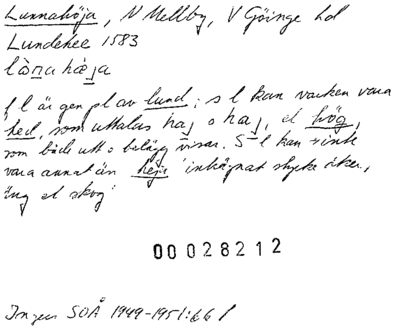 Lunnahöja, N Mellby, V Göinge hd
Lundehee 1583
lὰnahæja
f l är gen pl av lund; s l kan varken vara
hed, som uttalas haj o haj, el hög,
som både utt o belägg visar. S l kan inte
vara annat än heja 'inhägnat stycke åker,
äng el skog'
00028212
Ingers SOÅ 1949-1951:66 f